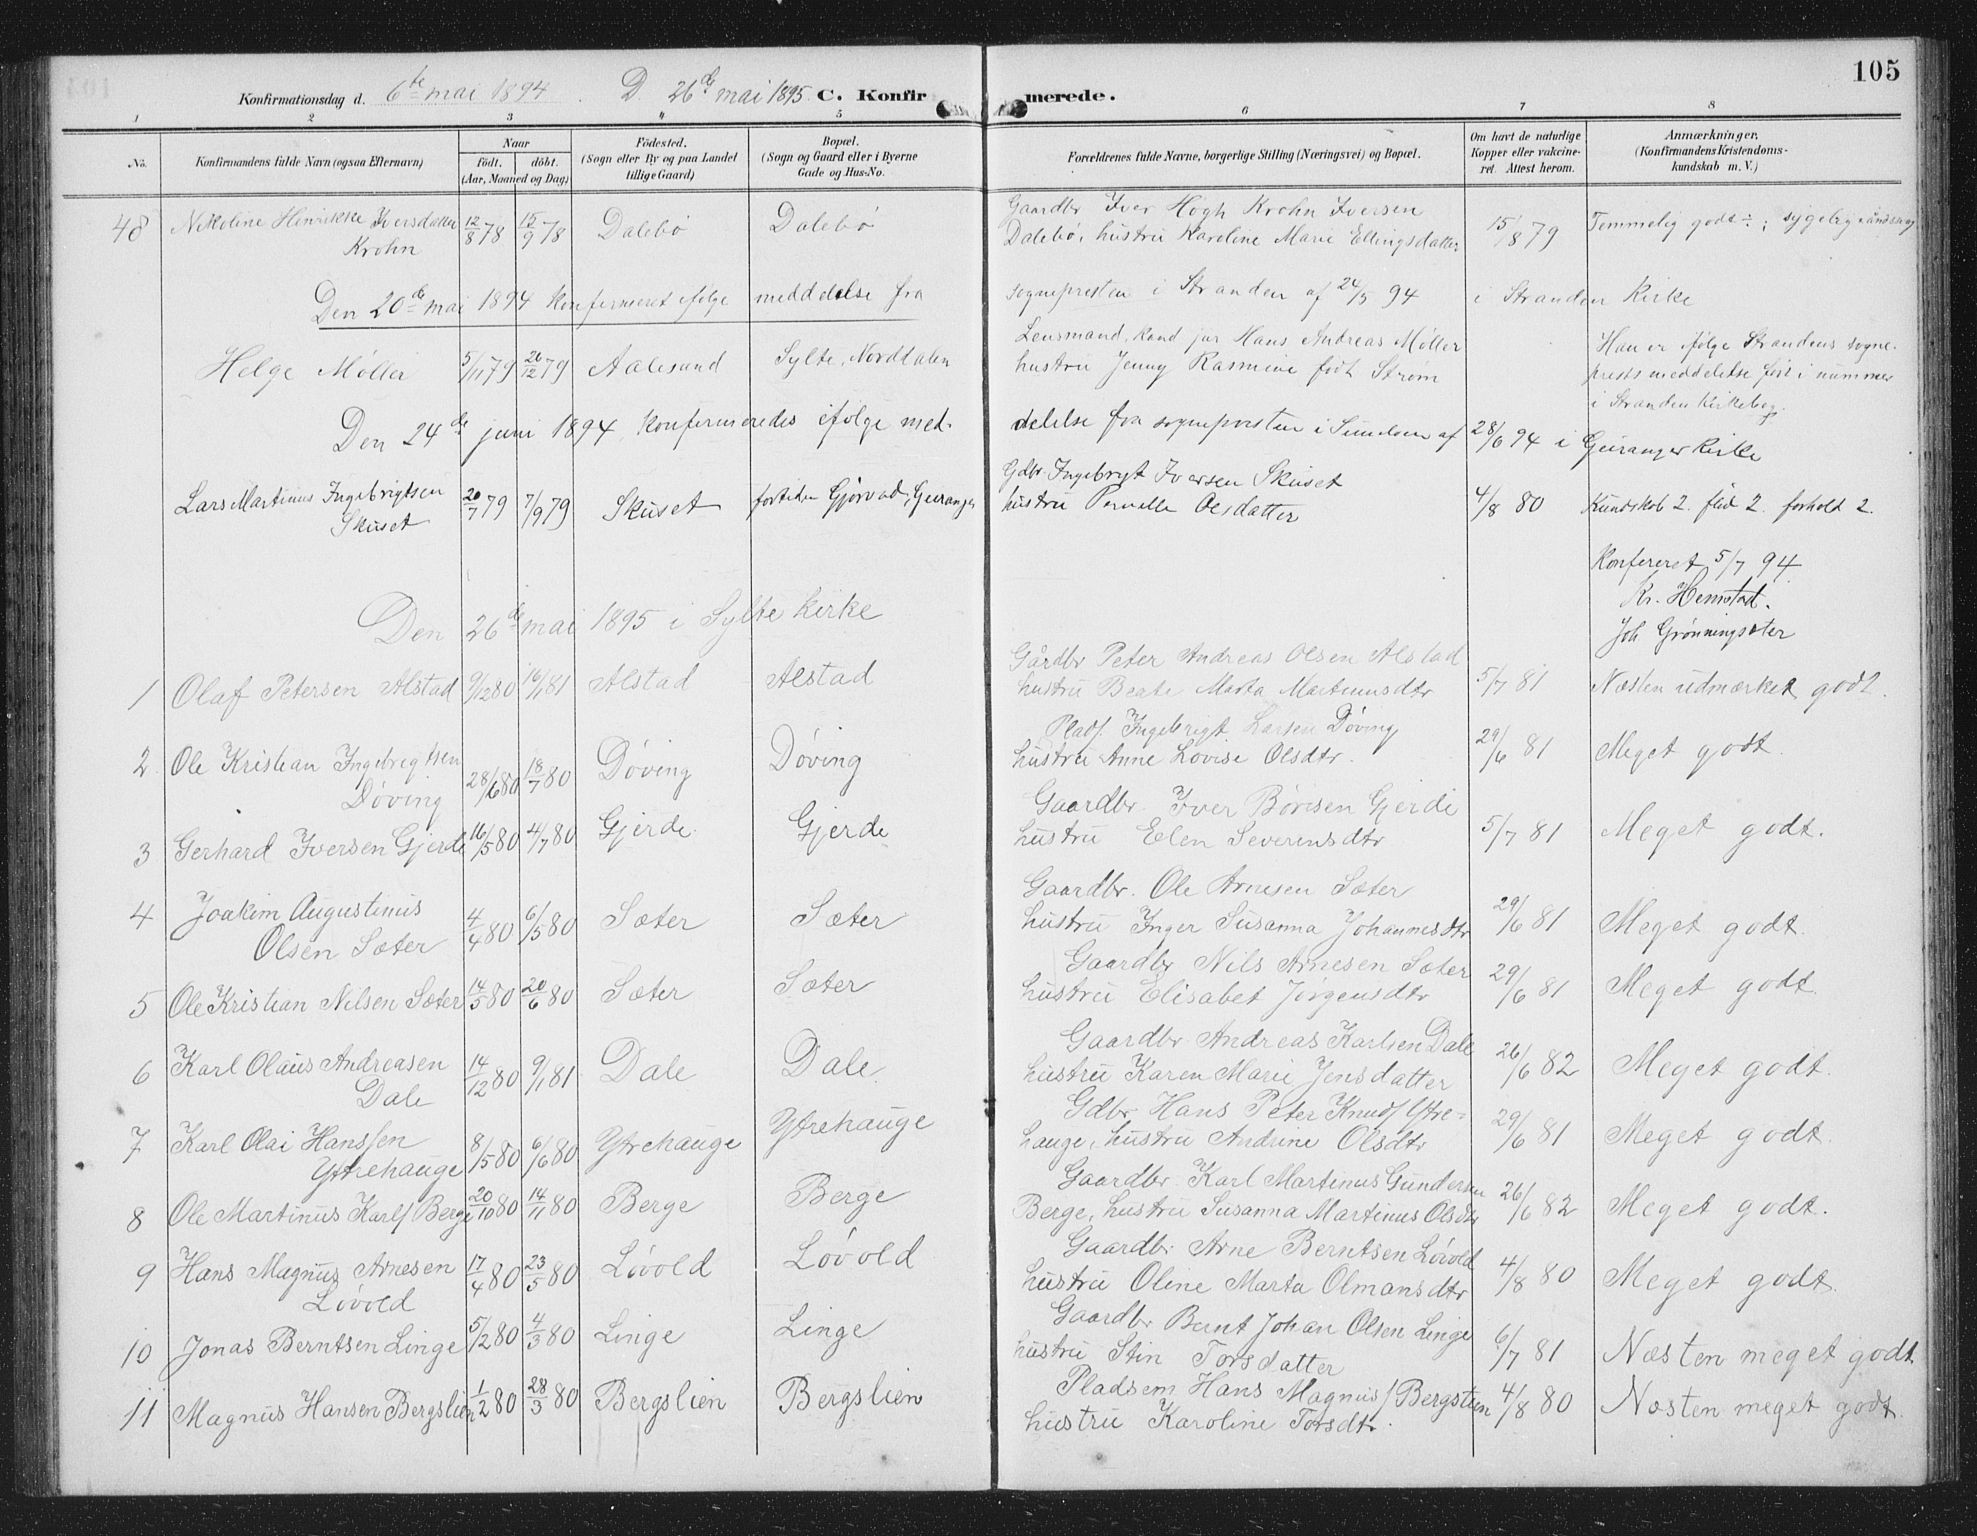 105
Konfirmationsdag d. 6te mai 1894. D. 26de mai 1895 C. Konfirmerede.
1 2 3 4 5 6 7 8
No. Konfirmandens fulde Navn (ogsaa Efternavn) Naar født. døbt. (Aar, Maaned og Dag) Fødested. (Sogn eller By og paa Landet tillige Gaard) Bopæl. (Sogn og Gaard eller i Byerne Gade og Hus-No. Forældrenes fulde Navne, borgerlige Stilling (Næringsvei) og Bopæl. Om havt de naturlige Kopper eller vakcineret. Attest herom. Anmærkninger. (Konfirmandens Kristendomskundskab m. V.)
48 Nikoline Hinrikke Iversdatter 12/8 78 15/9 78 Dalebø Dalebø Gaardbr Iver Høgh Krohn Iversen 15/8 79 Temmelig godt ÷; sygelig
Krohn Dalebø, hustru Karoline Marie Ellingsdatter
Den 20de mai 1894 konfirmeret ifølge meddelelse fra sognepresten i Stranden af 24/5 94 i Stranden kirke
Helge Møller 5/11 79 26/12 79 Aalesund Sylte, Norddalen Lensmand, kand jur Hans Andreas Møller Han er ifølge Strandens sogne-
hustru Jenny Rasmine født Strøm prests meddelelse ført i nummer
i Stranden kirkebog.
Den 24de juni 1894 konfirmeredes ifølge meddelelse fra sognepresten i Sunelven af 28/6 94 i Geiranger kirke
Lars Martinus Ingebrigtsen 20/7 79 7/9 79 Skuset fortiden Gjørvad, Geiranger Gdbr Ingebrigt Iversen Skuset 4/8 80 Kundskab 2. flid 2. forhold 2.
Skuset hustru Pernille Olsdatter
Konfereret 5/7 94
Kr. Hemstad.
Joh Grønningsæter
Den 26de mai 1895 i Sylte kirke
1 Olaf Petersen Alstad 9/12 80 16/1 81 Alstad Alstad Gårdbr Peter Andreas Olsen Alstad 5/7 81 Næsten udmærket godt.
hustru Beate Marta Martinusdtr
2 Ole Kristian Ingebrigtsen 28/6 80 18/7 80 Døving Døving Plads. Ingebrigt Larsen Døving 29/6 81 Meget godt.
Døving hustru Anne Lovise Olsdtr.
3 Gerhard Iversen Gjerde 16/5 80 4/7 80 Gjerde Gjerde Gaardbr. Iver Børisen Gjerde 5/7 81 Meget godt.
hustru Elen Severensdtr
4 Joakim Augustinus 4/4 80 6/5 80 Sæter Sæter Gaardbr. Ole Arnesen Sæter 29/6 81 Meget godt.
Olsen Sæter hustru Inger Susanna Johannesdtr
5 Ole Kristian Nilsen Sæter 14/5 80 20/6 80 Sæter Sæter Gaardbr Nils Arnesen Sæter 29/6 81 Meget godt
hustru Elisabet Jørgensdtr
6 Karl Olaus Andreasen 14/12 80 9/1 81 Dale Dale Gaardbr Andreas Karlsen Dale 26/6 82 Meget godt.
Dale hustru Karen Marie Jensdatter
7 Karl Olai Hanssen 8/5 80 6/6 80 Ytrehauge Ytrehauge Gdbr. Hans Peter Knuds Ytre= 29/6 81 Meget godt.
Yttrehauge hauge, hustru Andrine Olsdtr
8 Ole Martinus Karls Berge 20/10 80 14/11 80 Berge Berge Gaardbr. Karl Martinus Gundersen 26/6 82 Meget godt.
Berge, hustru Susanna Martinus Olsdtr
9 Hans Magnus Arnesen 17/4 80 23/5 80 Løvold Løvold Gaardbr. Arne Berntsen Løvold 4/8 80 Meget godt.
Løvold hustru Oline Marta Olmansdtr
10 Jonas Berntsen Linge 5/2 80 4/3 80 Linge Linge Gaardbr Bernt Johan Olsen Linge 6/7 81 Næsten meget godt
hustru Stin Torsdatter
11 Magnus Hansen Bergslien 1/2 80 28/3 80 Bergslien Bergslien Pladsem. Hans Magnus/Bergslien 4/8 80 Næsten meget godt.
hustru Karoline Torsdt.